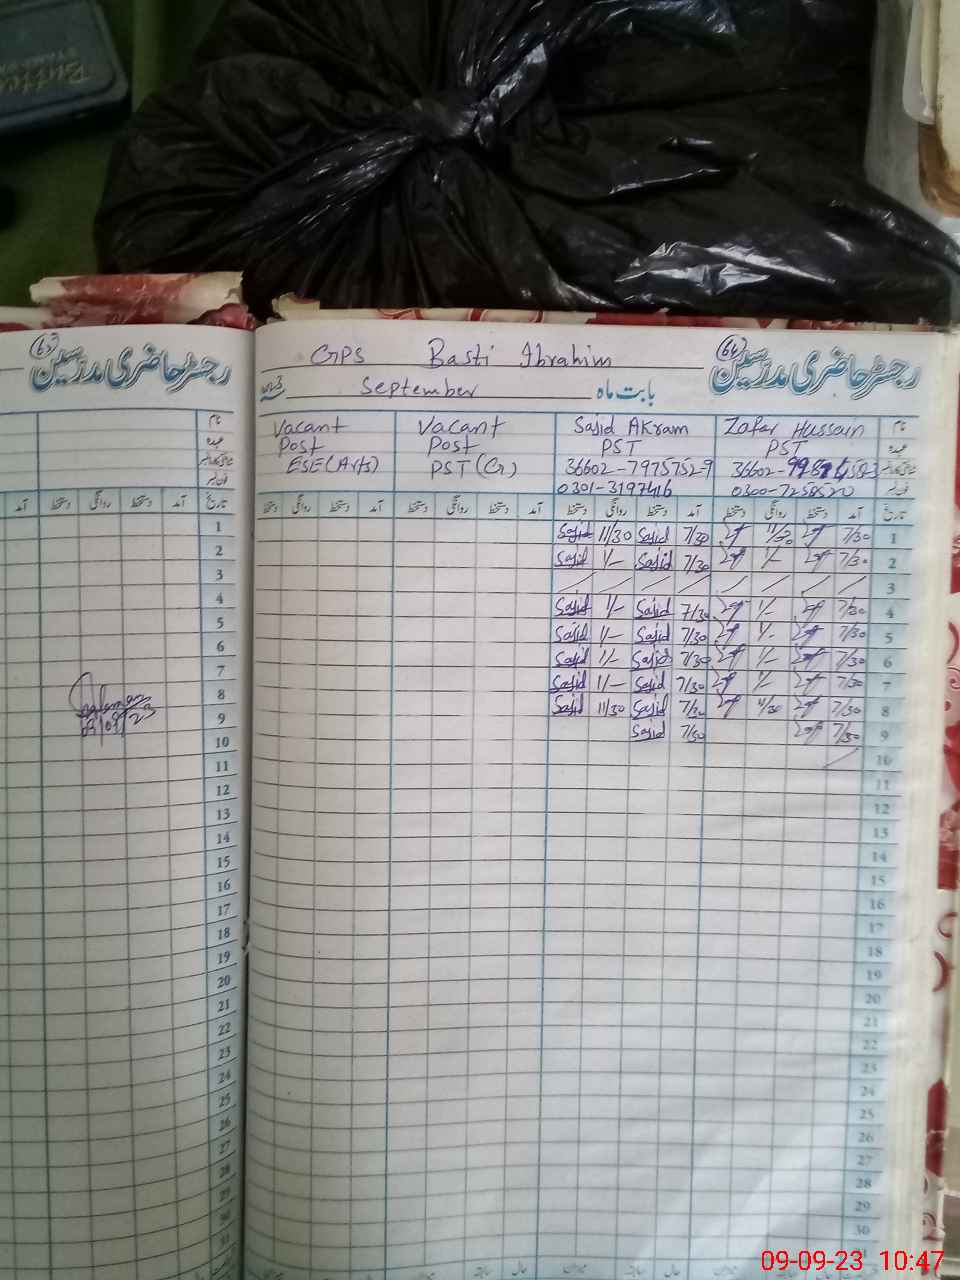 63
رجسٹر حاضری مدرسین
نام
عہدہ
آمد دستخط روانگی دستخط آمد تاریخ
1
2
3
4
5
6
7
8
9
10
11
12
13
14
15
16
17
18
19
20
21
22
23
24
25
26
27
28
29
30
31
09/09/23
64
رجسٹر حاضری مدرسین
GPS Basti Ibrahim
بابت ماہ September
نام Zafar Hussain Sajid Akram Vacant Vacant
عہدہ PST PST Post Post
36602-7975752-9 PST (G) ESE (Arts)
0300-7258520 0301-3197416
تاریخ آمد دستخط روانگی دستخط آمد دستخط روانگی دستخط آمد دستخط روانگی دستخط آمد دستخط روانگی دستخط
1 7/30 11/30 7/30 Sajid 11/30 Sajid
2 7/30 1/- 7/30 Sajid 1/- Sajid
3
4 7/30 1/- 7/30 Sajid 1/- Sajid
5 7/30 1/- 7/30 Sajid 1/- Sajid
6 7/30 1/- 7/30 Sajid 1/- Sajid
7 7/30 1/- 7/30 Sajid 1/- Sajid
8 7/30 11/30 7/30 Sajid 11/30 Sajid
9 7/30 7/30 Sajid
10
11
12
13
14
15
16
17
18
19
20
21
22
23
24
25
26
27
28
29
30
09-09-23 10:47